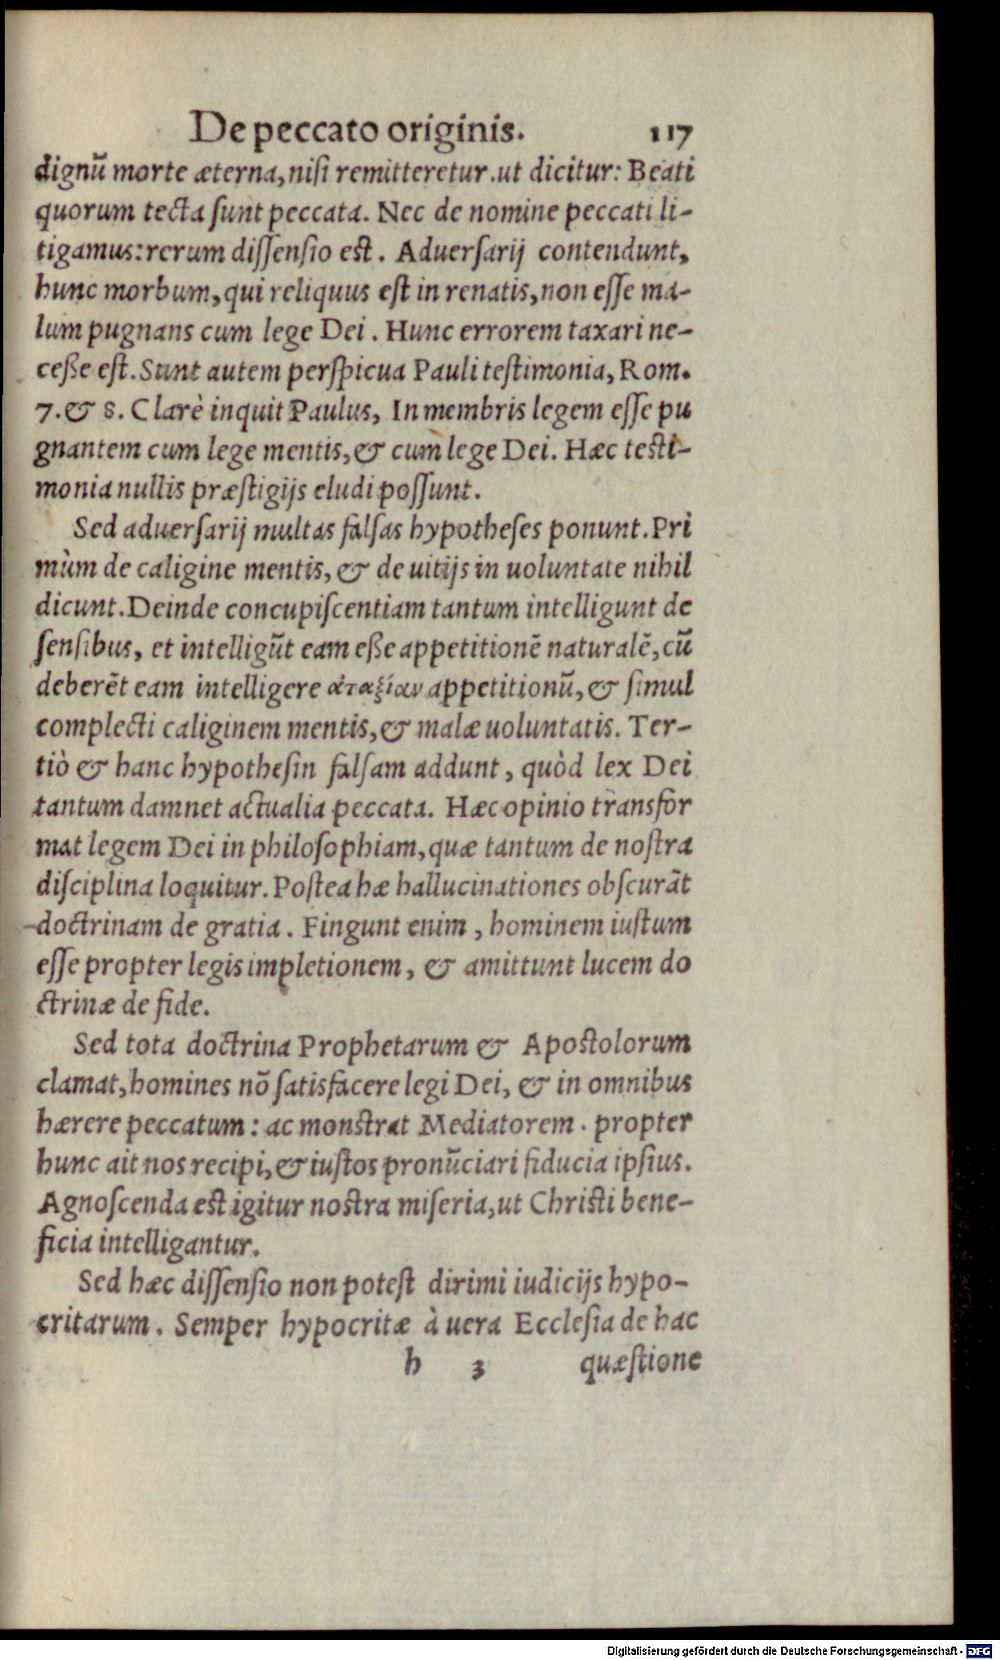 De peccato originis. 117
dignũ morte æterna, niſi remitteretur. ut dicitur: Beati
quorum tecta ſunt peccata. Nec de nomine peccati li-
tigamus: rerum diſſenſio est. Aduerſarij contendunt,
hunc morbum, qui reliquus est in renatis, non eſſe ma-
lum pugnans cum lege Dei. Hunc errorem taxari ne-
ceße est. Sunt autem perſpicua Pauli teſtimonia, Rom.
7. & 8. Clarè inquit Paulus, In membris legem eſſe pu
gnantem cum lege mentis, & cum lege Dei. Hæc testi-
monia nullis præſtigijs eludi poſſunt.
Sed aduerſarij multas falſas hypotheſes ponunt. Pri
mùm de caligine mentis, & de uitijs in uoluntate nihil
dicunt. Deinde concupiſcentiam tantum intelligunt de
ſenſibus, et intelligũt eam eße appetitionẽ naturalẽ, cũ
deberẽt eam intelligere ἀταξίαν appetitionũ, & ſimul
complecti caliginem mentis, & malæ uoluntatis. Ter-
tiò & hanc hypotheſin falſam addunt, quòd lex Dei
tantum damnet actualia peccata. Hæc opinio transfor
mat legem Dei in philoſophiam, quæ tantum de noſtra
diſciplina loquitur. Poſtea hæ hallucinationes obſcurãt
doctrinam de gratia. Fingunt enim, hominem iuſtum
eſſe propter legis impletionem, & amittunt lucem do
ctrinæ de fide.
Sed tota doctrina Prophetarum & Apostolorum
clamat, homines nõ ſatisfacere legi Dei, & in omnibus
hærere peccatum: ac monstrat Mediatorem. propter
hunc ait nos recipi, & iuſtos pronũciari fiducia ipſius.
Agnoſcenda est igitur nostra miſeria, ut Christi bene-
ficia intelligantur.
Sed hæc diſſenſio non poteſt dirimi iudicijs hypo-
critarum. Semper hypocritæ à uera Eccleſia de hac
h 3 quæſtione
Digitalisierung gefördert durch die Deutsche Forschungsgemeinschaft - DFG